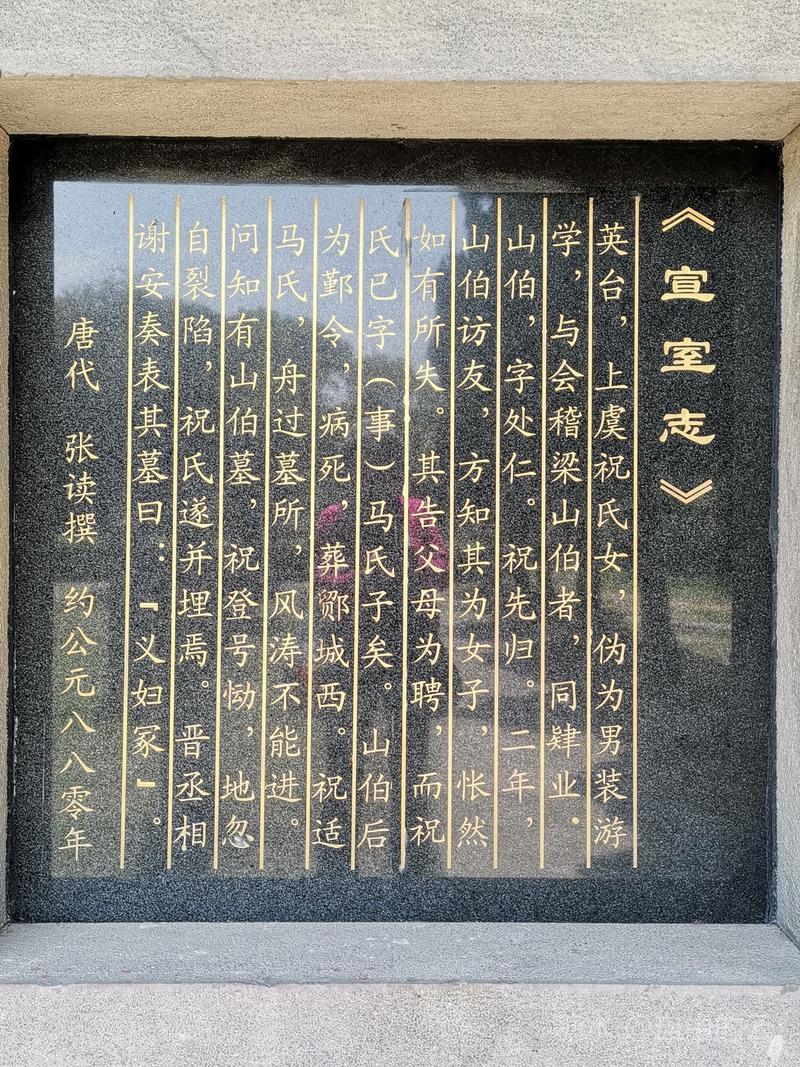 《宣室志》
英台，上虞祝氏女，伪为男装游
学，与会稽梁山伯者，同肄业．
山伯，字处仁。祝先归。二年，
山伯访友，方知其为女子，怅然
如有所失。其告父母为聘，而祝
氏已字（事）马氏子矣。山伯后
为鄞令，病死，葬鄮城西。祝适
马氏，舟过墓所，风涛不能进。
问知有山伯墓，祝登号恸，地忽
自裂陷，祝氏遂并埋焉。晋丞相
谢安奏表其墓曰：『义妇冢』。
唐代 张读撰 约公元八八零年